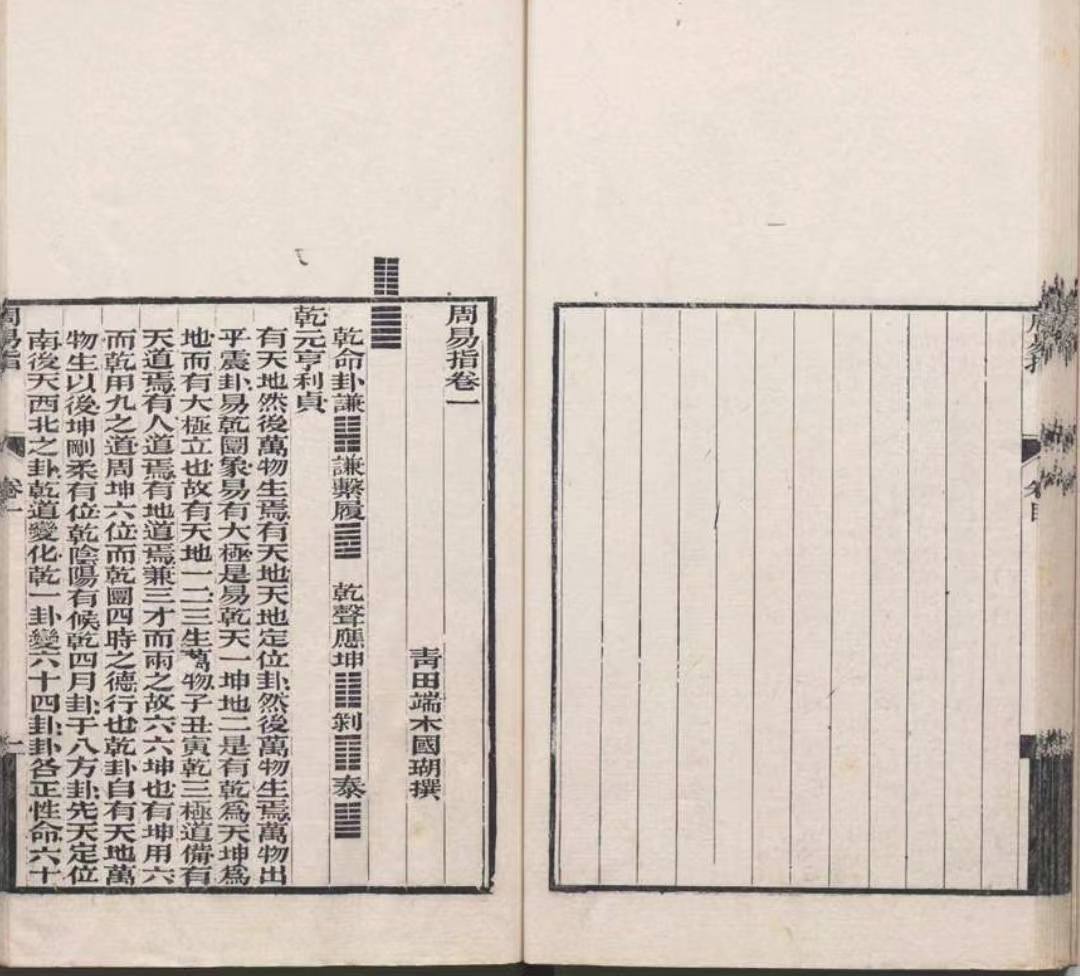 周易指卷一
青田端木國瑚撰
䷁
䷀
乾命卦謙䷎謙繫履䷉ 乾聲應坤䷁剝䷖泰䷊
乾元亨利貞
有天地然後萬物生焉有天地天地定位卦然後萬物生焉萬物出
乎震卦易乾圜象易有大極是易乾天一坤地二是有乾爲天坤爲
地而有大極立也故有天地一二三生萬物子丑寅乾三極道備有
天道焉有人道焉有地道焉兼三才而兩之故六六坤也有坤用六
而乾用九之道周坤六位而乾圜四時之德行也乾卦自有天地萬
物生以後坤剛柔有位乾陰陽有候乾四月卦于八方卦先天定位
南後天西北之卦乾道變化乾一卦變六十四卦卦各正性命六十
周易指
卷一
一